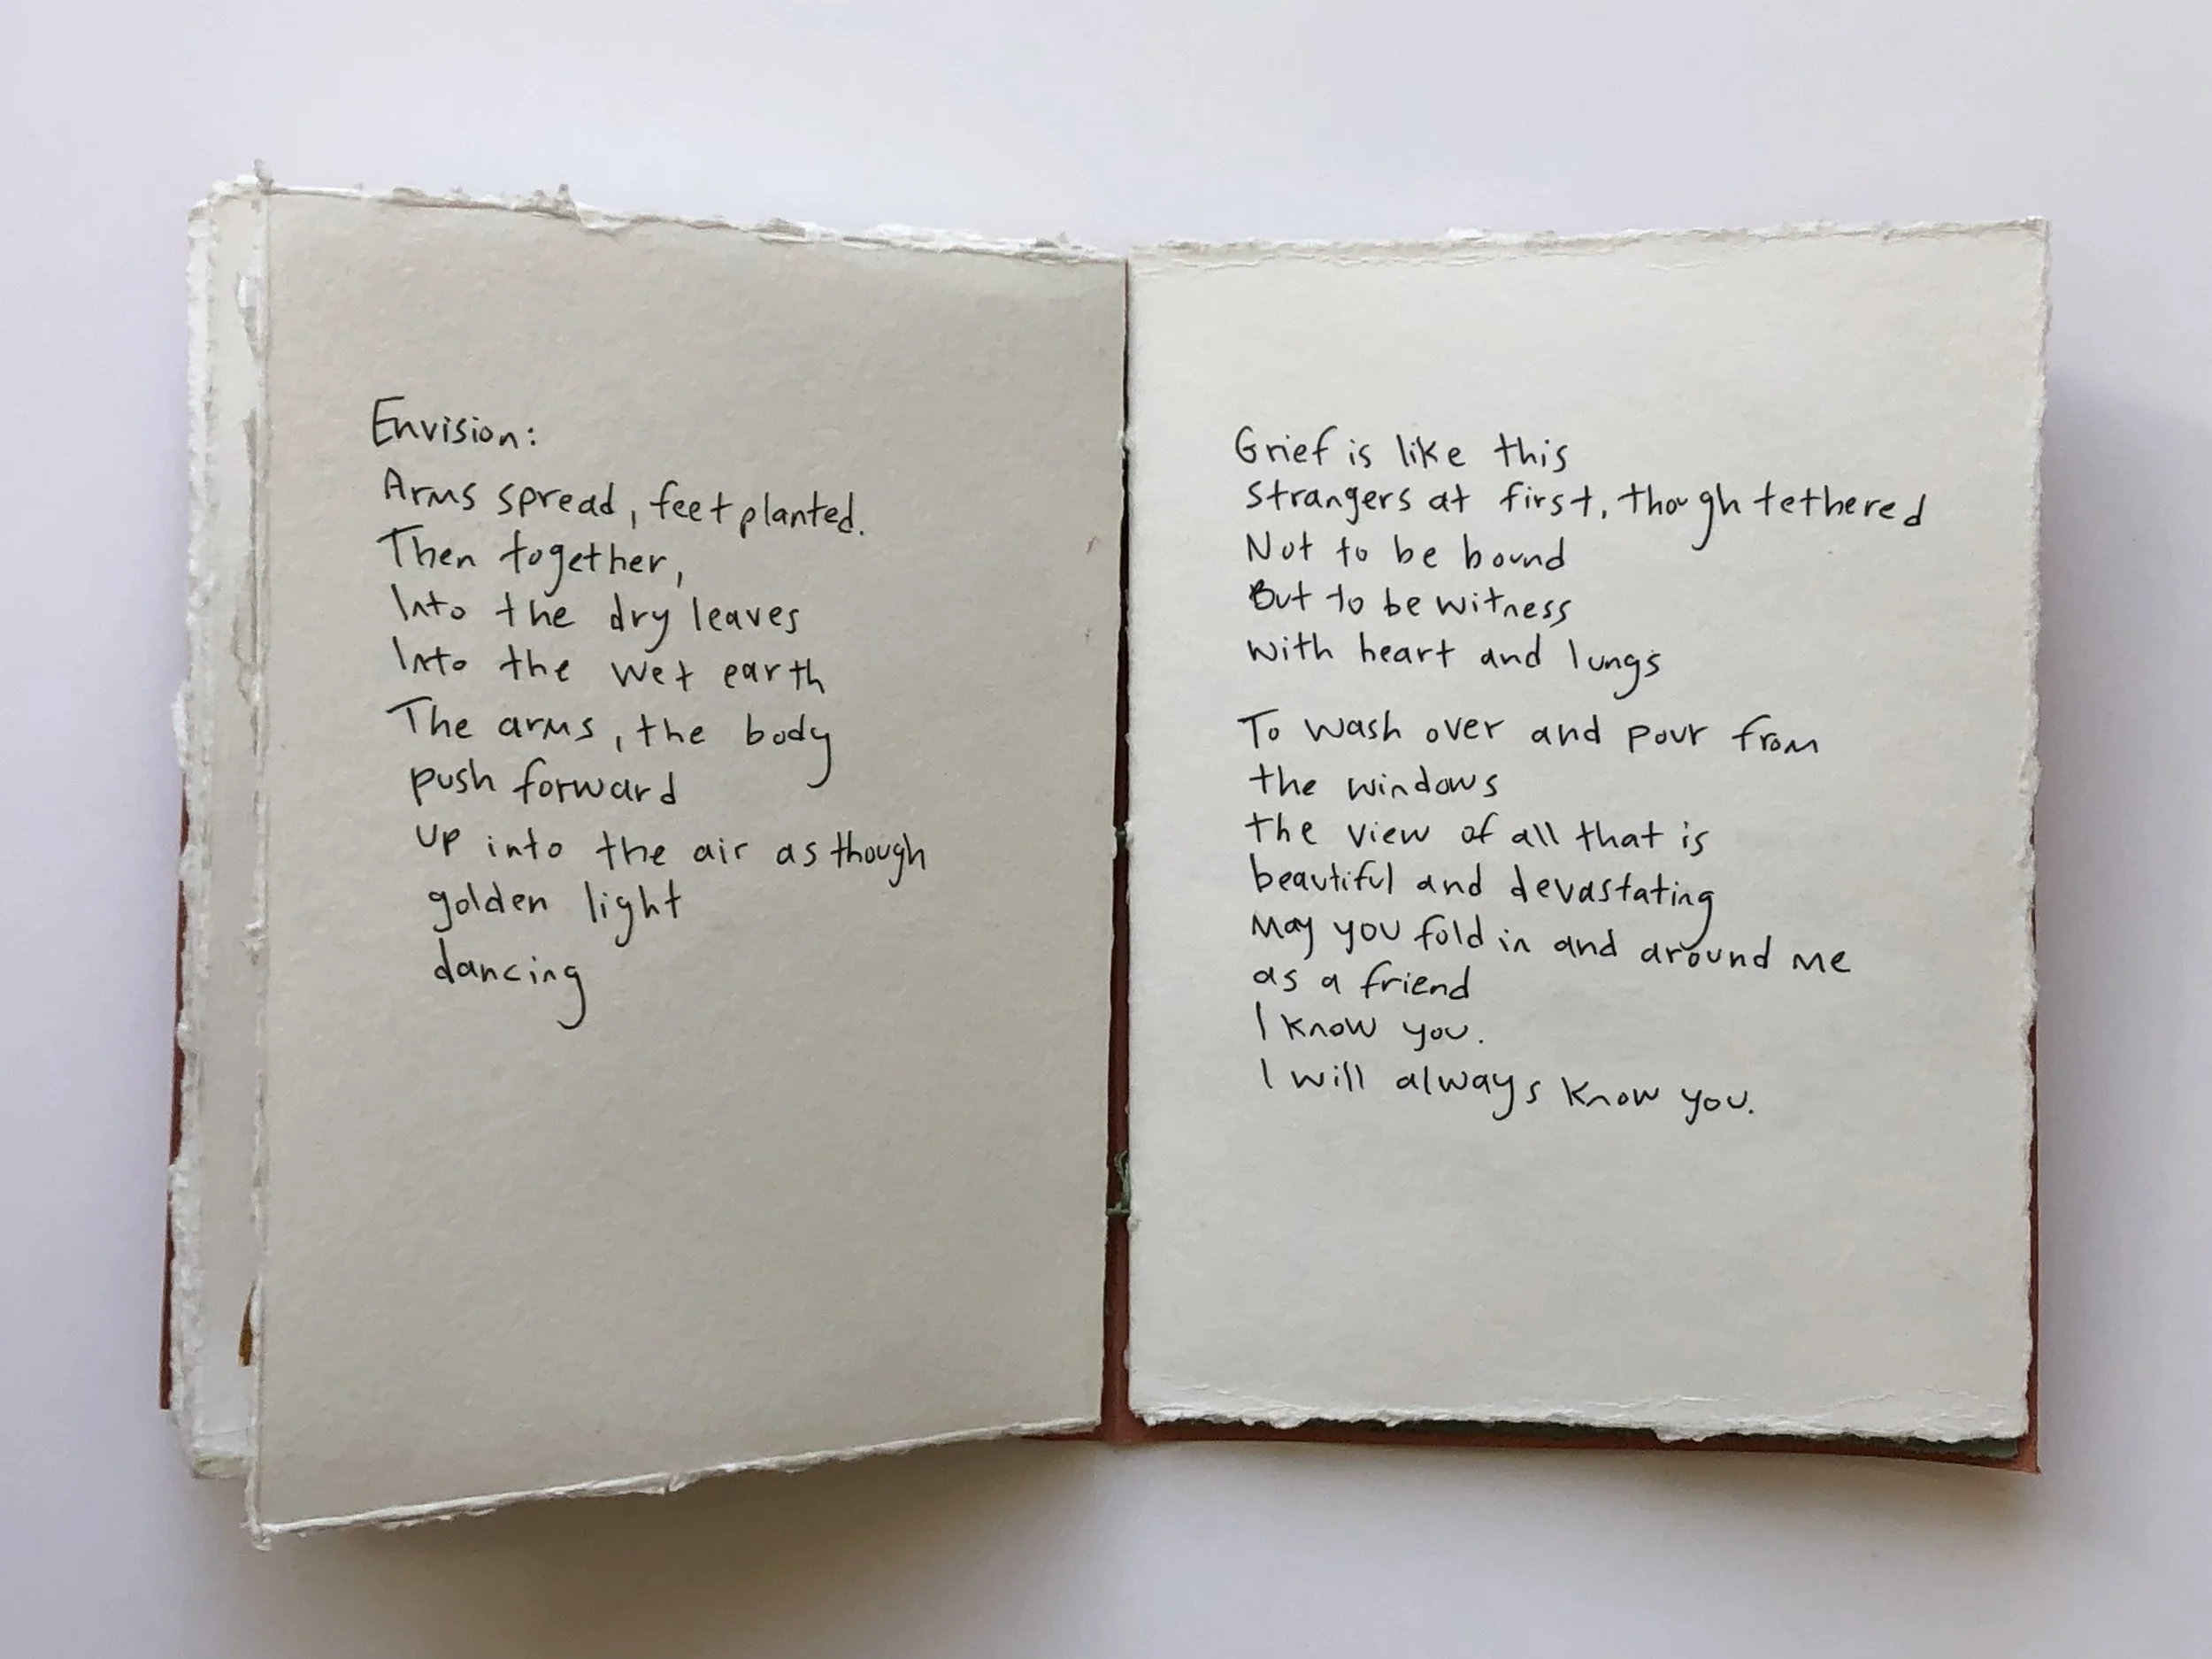 Envision:
Arms spread, feet planted.
Then together,
Into the dry leaves
Into the wet earth
The arms, the body
push forward
up into the air as though
golden light
dancing
Grief is like this
strangers at first, though tethered
Not to be bound
But to be witness
with heart and lungs
To wash over and pour from
the windows
the view of all that is
beautiful and devastating
May you fold in and around me
as a friend
I know you.
I will always know you.